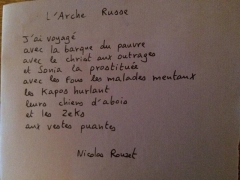 L'Arche Russe
J'ai voyagé
avec la barque du pauvre
avec le christ aux outrages
et Sonia la prostituée
avec les fous les malades mentaux
les Kapos hurlant
leurs chiens d'abois
et les Zeks
aux vestes puantes
Nicolas Rouzet